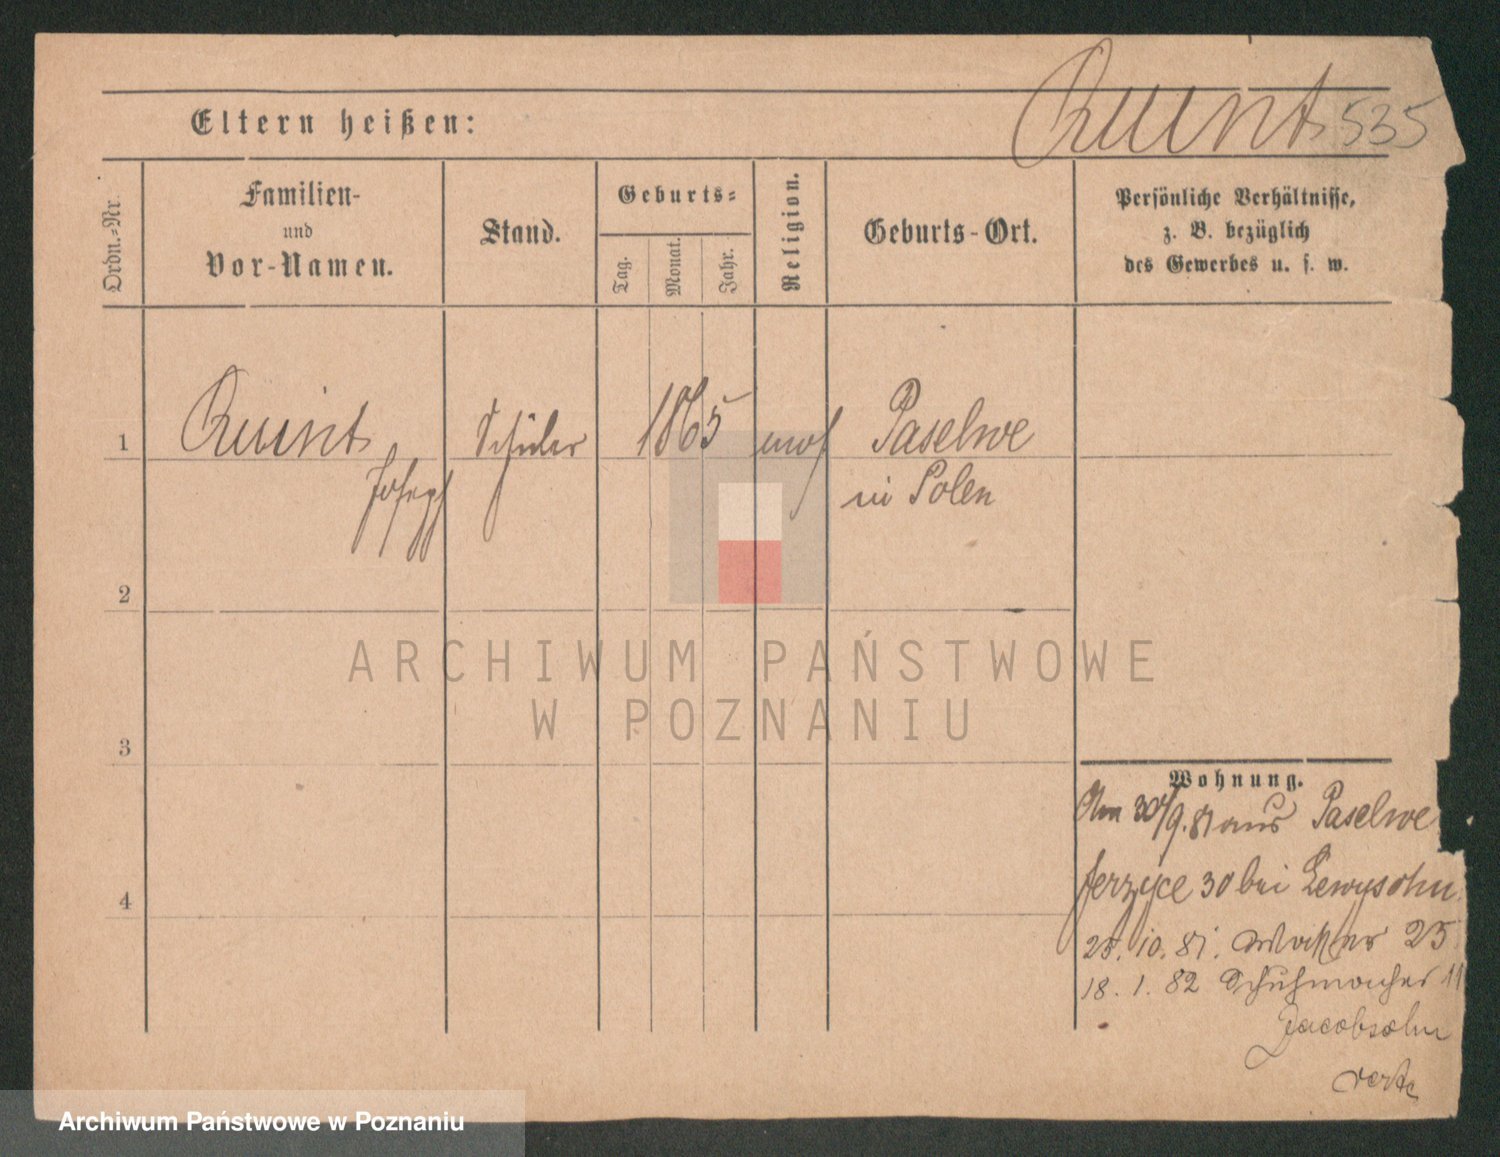 Quint 535
Eltern heißen:
Ordn.-Nr.
Familien-
und
Vor-Namen.
Stand.
Geburts-
Tag.
Monat.
Jahr.
Religion.
Geburts-Ort.
Persönliche Verhältnisse,
z. B. bezüglich
des Gewerbes u. s. w.
1
Quint
Joseph
Schüler
1865
mos
Paselwe
in Polen
2
ARCHIWUM PAŃSTWOWE
W POZNANIU
3
Wohnung.
Am 30/9. 81 aus Paselwe
Jerzyce 30 bei Lewysohn
25. 10. 81. 25
18. 1. 82 Schuhmacher 11
Jacobsohn
verte
4
Archiwum Państwowe w Poznaniu